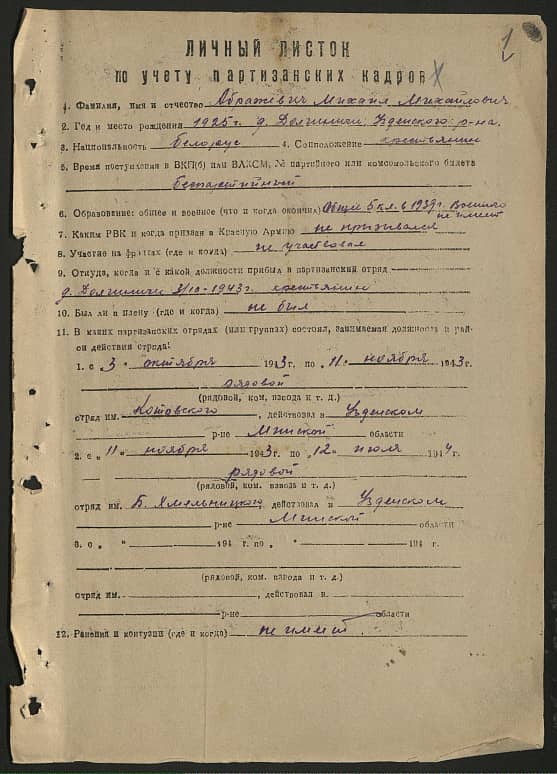 1
ЛИЧНЫЙ ЛИСТОК
по учету партизанских кадров
1. Фамилия, имя и отчество Абражевич Михаил Михайлович
2. Год и место рождения 1925 г. д. Долгиничи Узденского р-на.
3. Национальность белорус 4. Соцположение крестьянин
5. Время поступления в ВКП(б) или ВЛКСМ, № партийного или комсомольского билета
беспартийный
6. Образование: общее и военное (что и когда окончил) Общее 5 кл. в 1939 г. Военного
не имеет
7. Каким РВК и когда призван в Красную Армию не призывался
8. Участие на фронтах (где и когда) не участвовал
9. Откуда, когда и с какой должности прибыл в партизанский отряд
д. Долгиничи 3/10-1943 г. крестьянин
10. Был ли в плену (где и когда) не был
11. В каких партизанских отрядах (или группах) состоял, занимаемая должность и рай-
он действия отряда:
1. с 3 октября 1943 г. по "11" ноября 1943 г.
рядовой
(рядовой, ком. взвода и т. д.)
отряд им. Котовского, действовал в Узденском
р-не Минской области
2. с "11" ноября 1943 г. по "12" июля 1944 г.
рядовой
(рядовой, ком. взвода и т. д.)
отряд им. Б. Хмельницкого действовал в Узденском
р-не Минской области
3. с " " 194 г. по " " 194 г.
(рядовой, ком. взвода и т. д.)
отряд им. , действовал в
р-не области
12. Ранения и контузии (где и когда) не имеет.